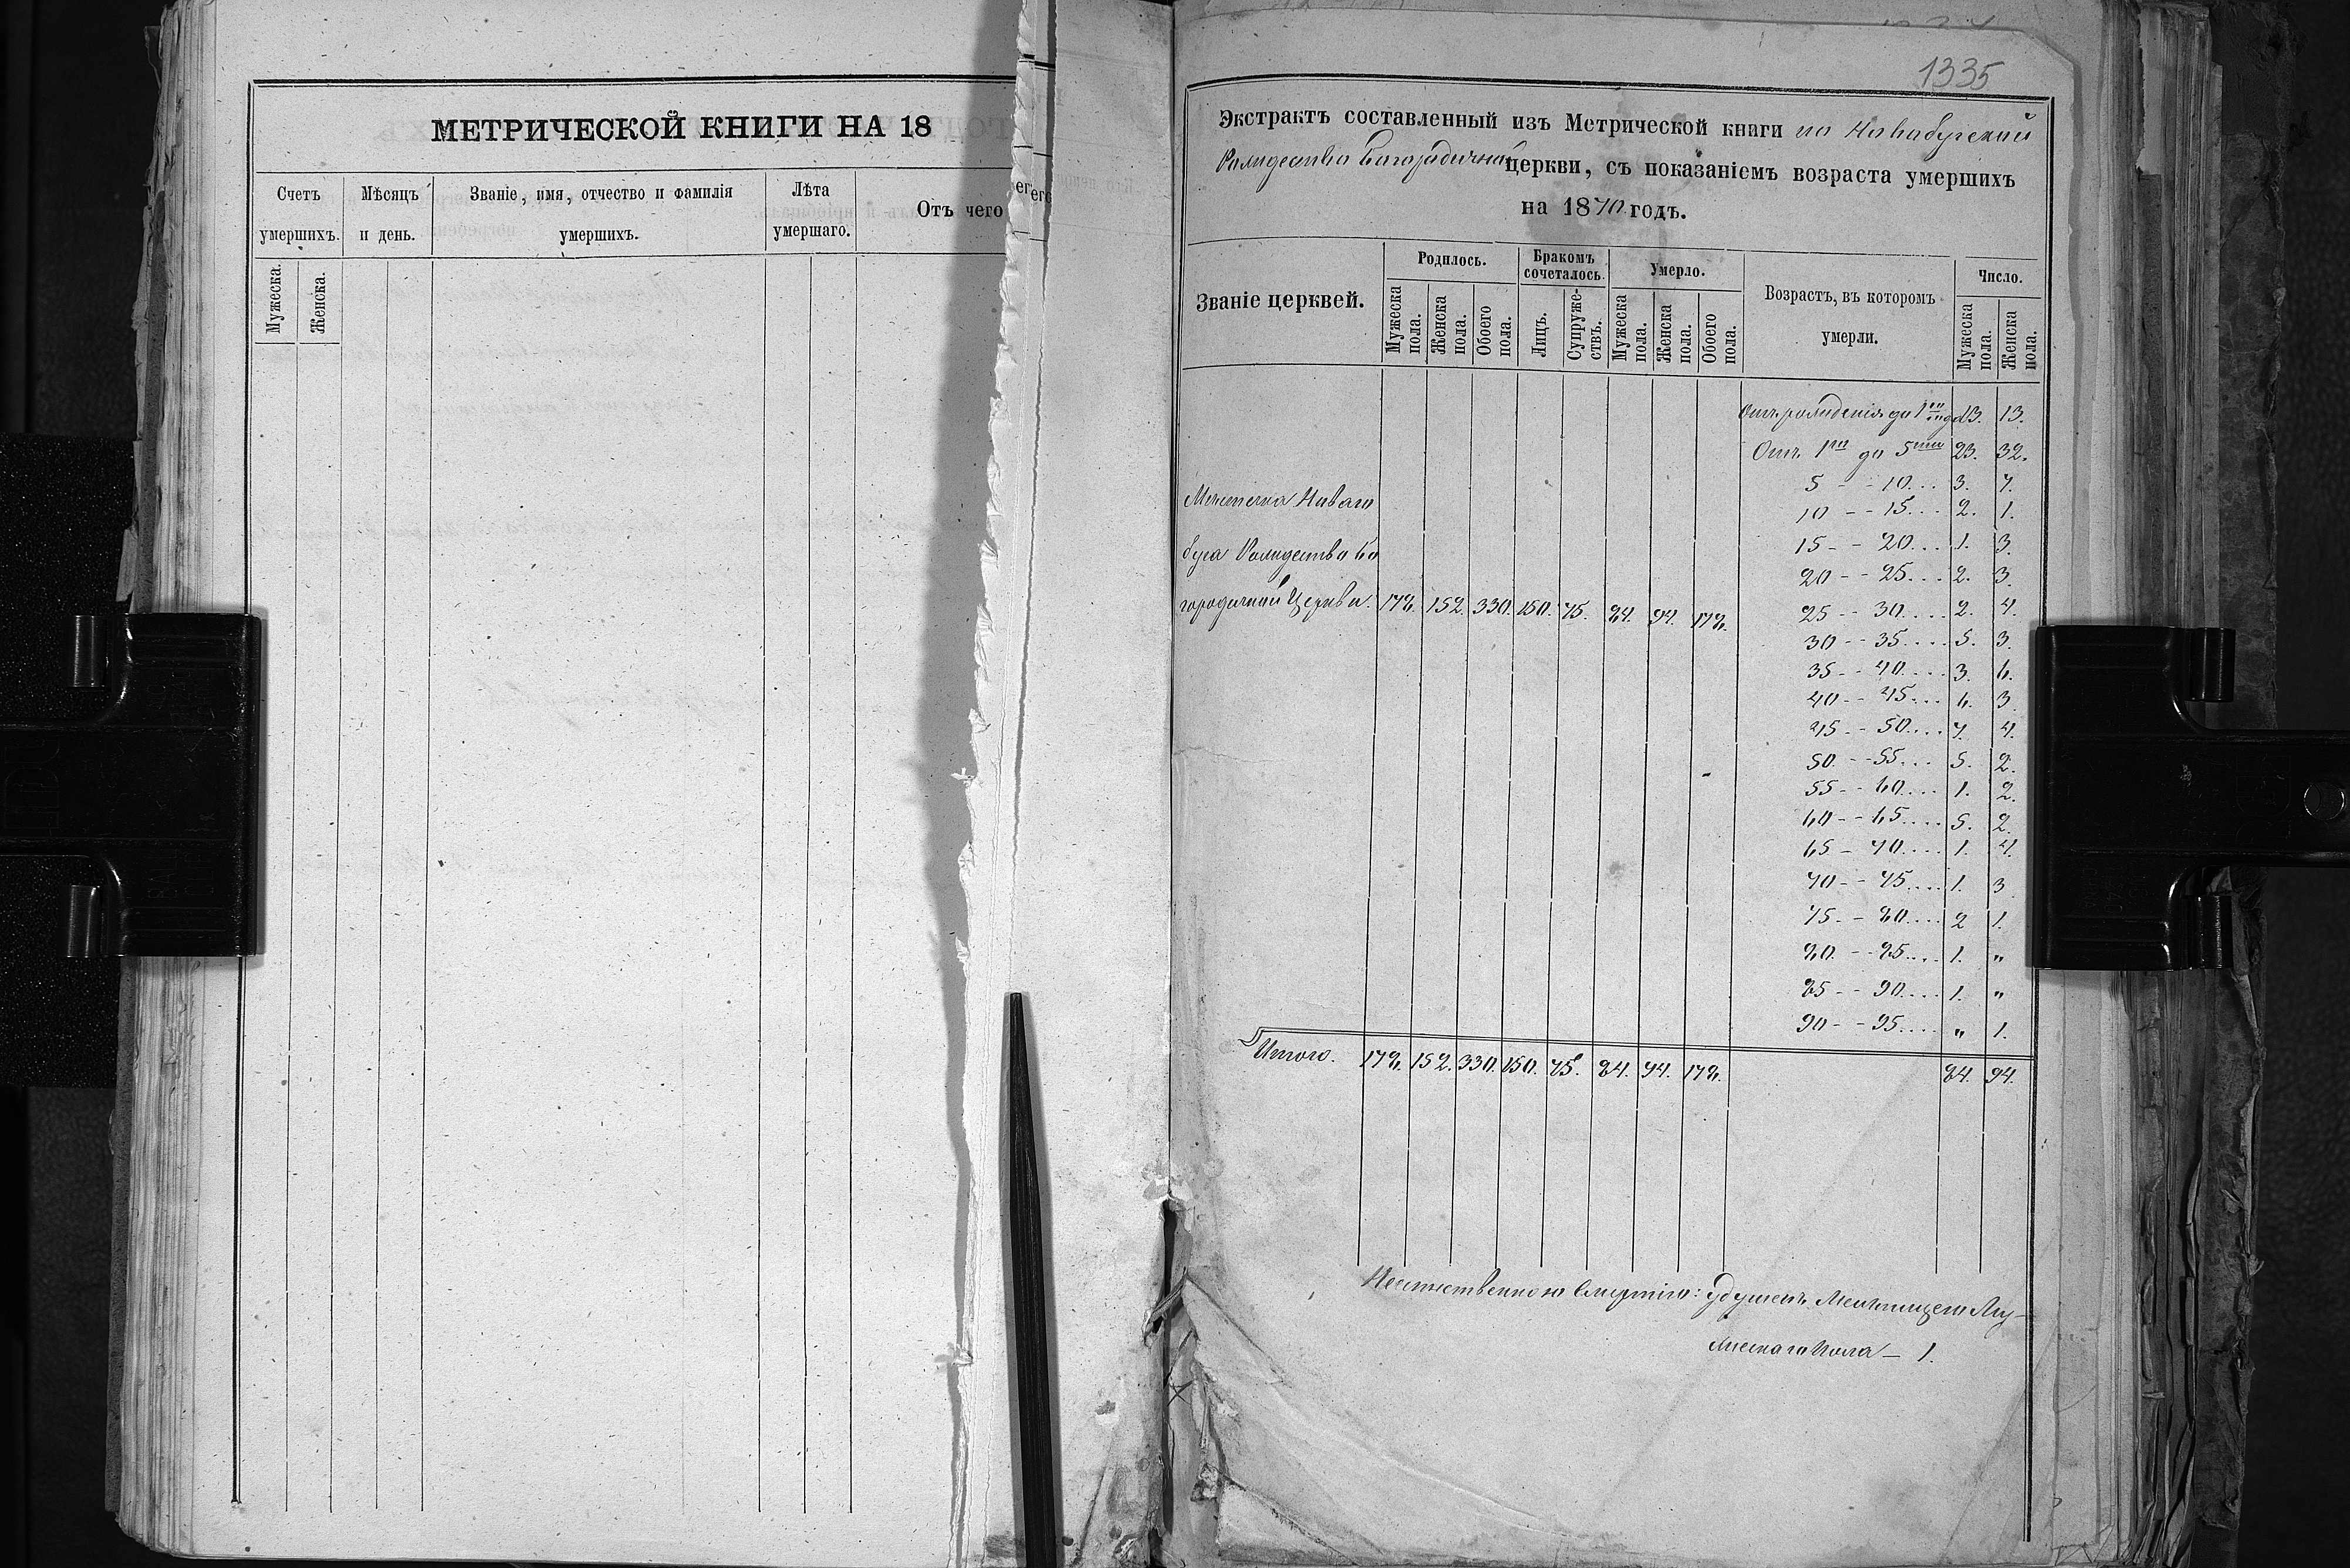 1335
МЕТРИЧЕСКОЙ КНИГИ НА 18
Счетъ умершихъ.
Мѣсяцъ и день.
Званіе, имя, отчество и фамилія умершихъ.
Лѣта умершаго.
Отъ чего
Мужеска.
Женска.
Экстрактъ составленный изъ Метрической книги по Новобугской
Рождество Богородичной церкви, съ показаніемъ возраста умершихъ
на 1870 годъ.
Званіе церквей.
Родилось.
Мужеска пола.
Женска пола.
Обоего пола.
Бракомъ сочеталось.
Лицъ.
Супружествъ.
Умерло.
Мужеска пола.
Женска пола.
Обоего пола.
Возрастъ, въ которомъ умерли.
Число.
Мужеска пола.
Женска пола.
Отъ рожденія до 1го года 13. 13.
Отъ 1го до 5ти 23. 32.
5 - - 10... 3. 7.
10 - - 15... 2. 1.
15 - - 20... 1. 3.
20 - - 25... 2. 3.
25 - - 30.... 2. 4.
30 - - 35.... 5. 3.
35 - - 40.... 3. 6.
40 - - 45... 6. 3.
45 - - 50.... 7. 4.
50 - - 55... 5. 2.
55 - - 60.... 1. 2.
60 - - 65.... 5. 2.
65 - 70.... 1. 4.
70 - - 75.... 1. 3
75 - - 80.... 2 1.
80 - - 85.... 1. "
85 - - 90.... 1. "
90 - - 95.... " 1.
Местечка Новаго
Буга Рождество Бо
городичной Церкви. 178. 152. 330. 150. 75. 84. 94. 178.
Итого. 178. 152. 330. 150. 75. 84. 94. 178. 84. 94.
Неестественною Смертію: удушенъ Мельницею Му-
жескаго Пола - 1.